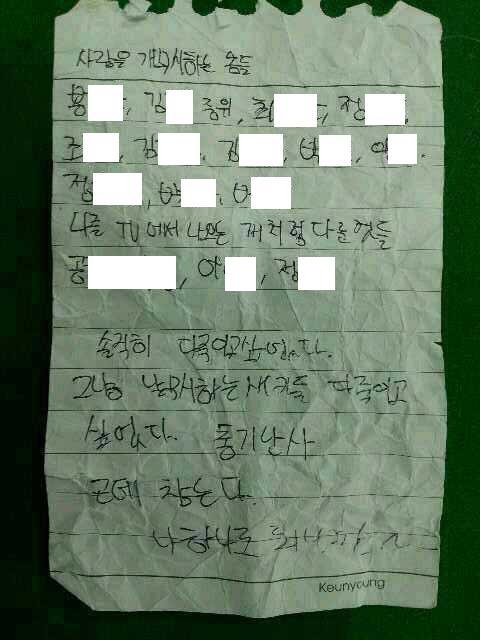 사람을 개무시하는 놈들
홍, 김 중위, 최, 정.
조, 김, 김, 박, 이.
정, 박, 박
나를 TV에서 나오는 꺼처럼 다룬 것들
공, 이, 정
솔직히 다죽이고싶었다.
그냥 날무시하는새키들 다죽이고
싶었다. 총기난사
근데 참는다.
나하나로
Keunyoung